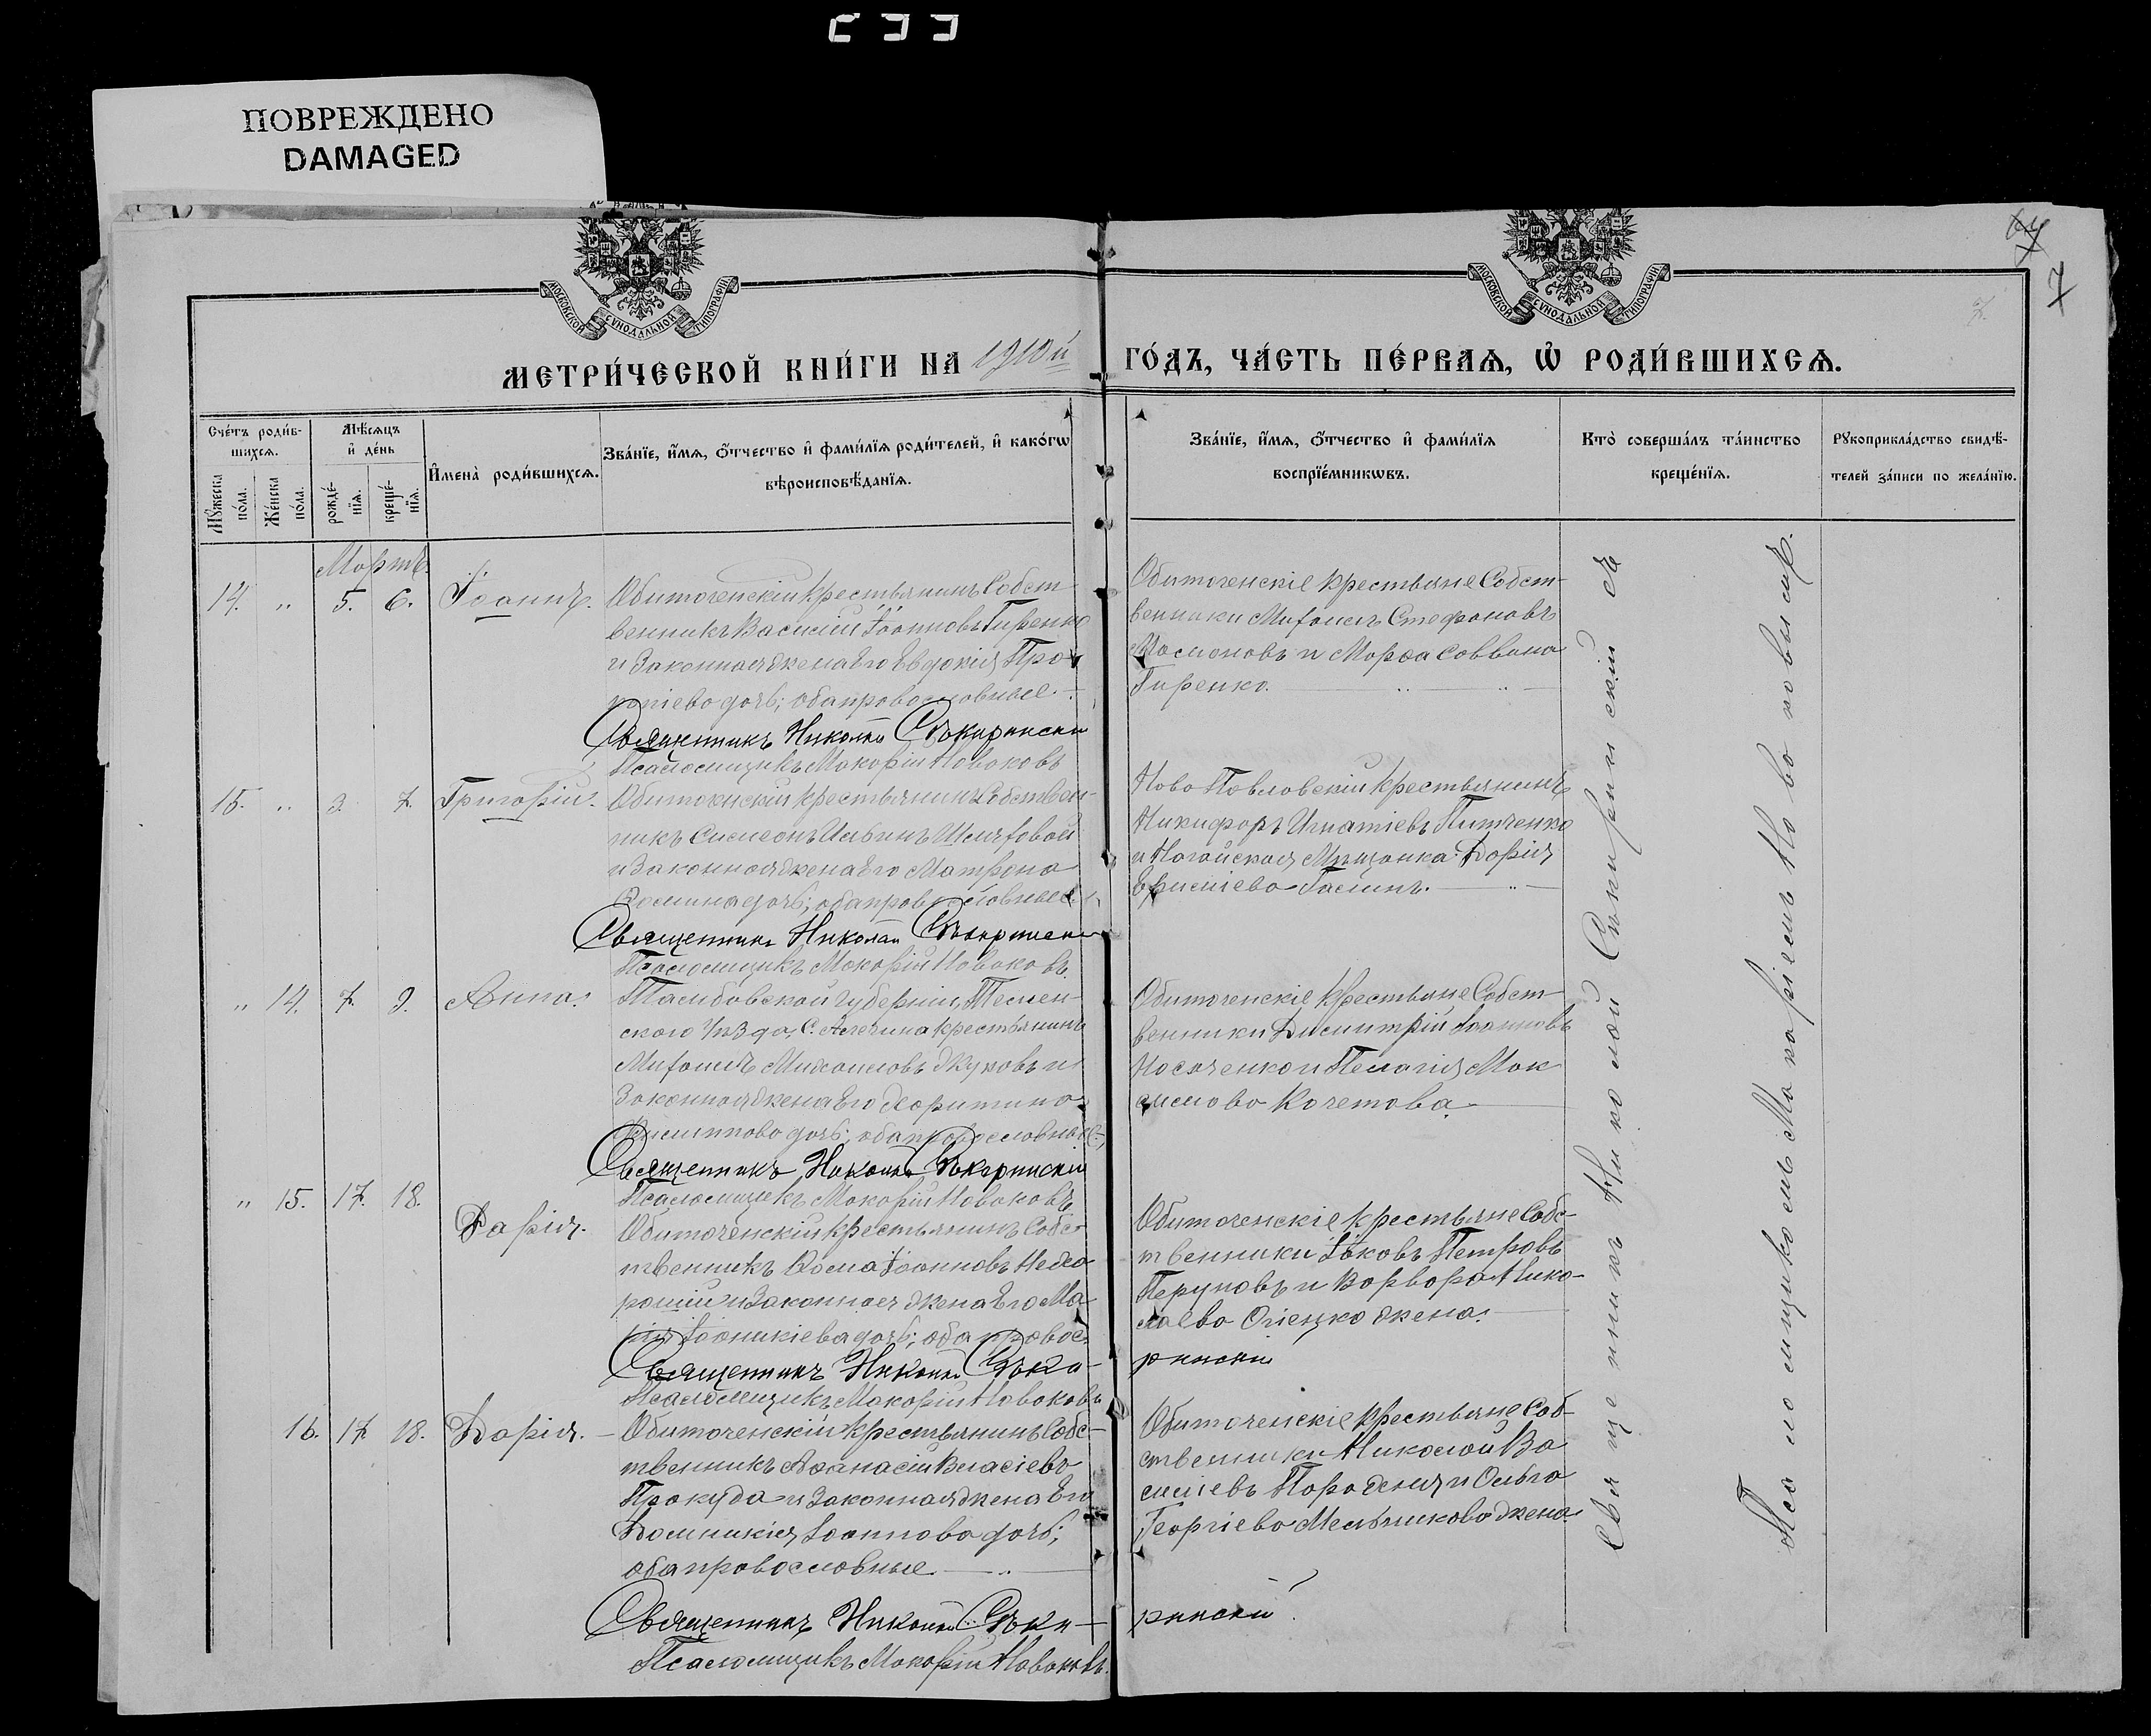 233
ПОВРЕЖДЕНО
DAMAGED
7
МОСКОВСКОЙ СѴНОДАЛЬНОЙ ТИПОГРАФІИ
МОСКОВСКОЙ СѴНОДАЛЬНОЙ ТИПОГРАФІИ
МЕТРИ́ЧЕСКОЙ КНИ́ГИ НА 1910й ГО́ДЪ, ЧА́СТЬ ПЕ́РВАѦ, Ѡ҆ РОДИ́ВШИХСѦ.
Сче́тъ роди́в-
шихсѧ.
Мꙋ́жеска по́ла.
Же́нска по́ла.
Мѣ́сѧцъ
и҆ де́нь
рожде́-
нїѧ.
креще́-
нїѧ.
И҆мена̀ роди́вшихсѧ.
Зва́нїе, и҆́мѧ, ѻ҆́тчество и҆ фами́лїѧ роди́телей, и҆ како́гѡ
вѣроисповѣ́данїѧ.
Зва́нїе, и҆́мѧ, ѻ҆́тчество и҆ фами́лїѧ
воспрїе́мникѡвъ.
Кто̀ соверша́лъ та́инство
креще́нїѧ.
Рꙋкоприкла́дство свидѣ́-
телей за́писи по жела́нїю.
Мартъ.
14. " 5. 6. Іоаннъ.
Обиточенскій крестьянинъ Собст
венникъ Василій Іоанновъ Гиренко
и Законная жена Его Евдокія Про
копіева дочь; оба православные.
Священникъ Николай Сѣкиринскій
Псаломщикъ Макарій Новаковъ
Обиточенскіе крестьяне Собст-
венники Михаилъ Стефановъ
и Марѳа Саввина
Гиренко.
15. " 2 7. Григорій.
Обиточнскій крестьянинъ Собствен-
никъ Симеонъ Ильинъ
и Законная жена Его Матрона
Ѳомина дочь; оба православные.
Священникъ Николай Сѣкиринскій
Псаломщикъ Макарій Новаковъ.
Ново Павловскій крестьянинъ
Никифоръ Игнатіевъ
и Ногайская Мѣщанка Дарія
" 14. 7. 9. Анна.
Тамбовской губерніи, Темен-
ского уѣзда, С. крестьянинъ
Михаилъ Михаиловъ Жуковъ и
Законная жена Его Харитина
Филиппова дочь; оба православные.
Священникъ Николай Сѣкиринскій
Псаломщикъ Макарій Новаковъ
Обиточенскіе крестьяне Собст-
венники Димитрій Іоанновъ
Носаченко и Пелагія Мак
симова Кочетова.
" 15. 17. 18. Дарія.
Обиточенскій крестьянинъ Собс-
твенникъ Ѳома Іоанновъ Нехо
рошій и Законная жена Его Ма
рія Іоаникіева дочь; оба правос.
Священникъ Николай Сѣки-
ринскій
Псаломщикъ Макарій Новаковъ
Обиточенскіе крестьяне Собс-
твенники Іаковъ Петровъ
Перуновъ и Варвара Нико-
лаева жена.
16. 17. 18. Дарія.
Обиточенскій крестьянинъ Собс-
твенникъ Аѳанасій Власіевъ
Прокуда и Законная жена Его
Домникія Іоаннова дочь;
оба православные.
Священникъ Николай Сѣки-
ринскій.
Псаломщикъ Макарій Новаковъ.
Обиточенскіе крестьяне Соб-
ственники Николай Ва
силіевъ и Ольга
Георгіева Мельникова жена.
Священникъ Николай Сѣкиринскій съ
Псаломщикомъ Макаріемъ Новаковымъ.